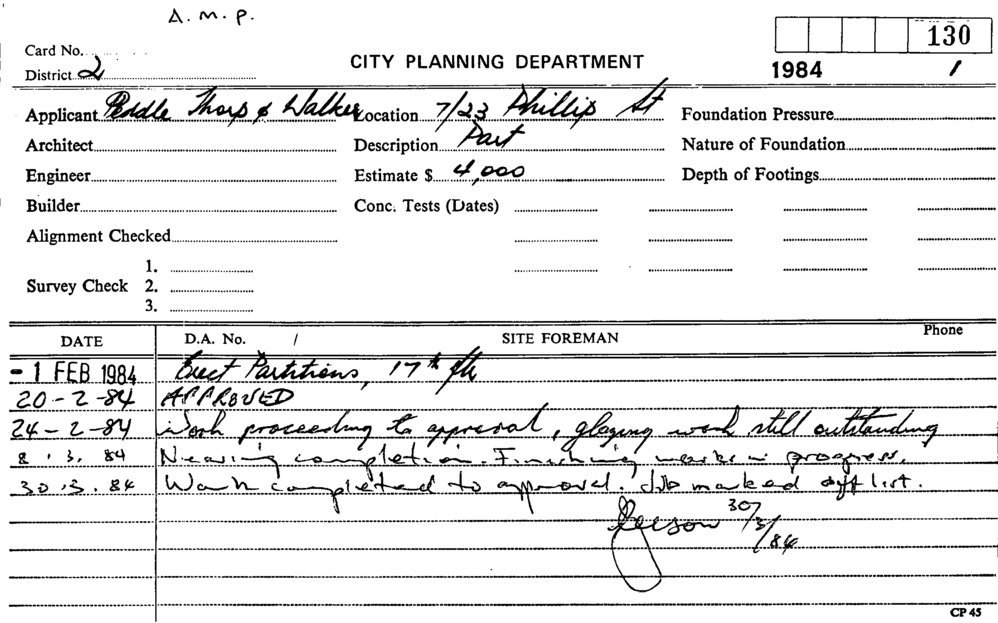 A. M. P.
130
Card No.
CITY PLANNING DEPARTMENT
1984 1
District 2
Applicant Peddle Thorp & Walker Location 7/23 Phillip St Foundation Pressure
Architect Description Part Nature of Foundation
Engineer Estimate $ 4,000 Depth of Footings
Builder Conc. Tests (Dates)
Alignment Checked
1.
Survey Check 2.
3.
DATE D.A. No. / SITE FOREMAN Phone
- 1 FEB 1984 Erect Partitions, 17th flr
20-2-84 APPROVED
24-2-84 Work proceeding to approval, glazing work still outstanding
8.3.84 Nearing completion. Finishing works in progress.
30.3.84 Work completed to approval. Job marked off list.
30/3/84
CP 45